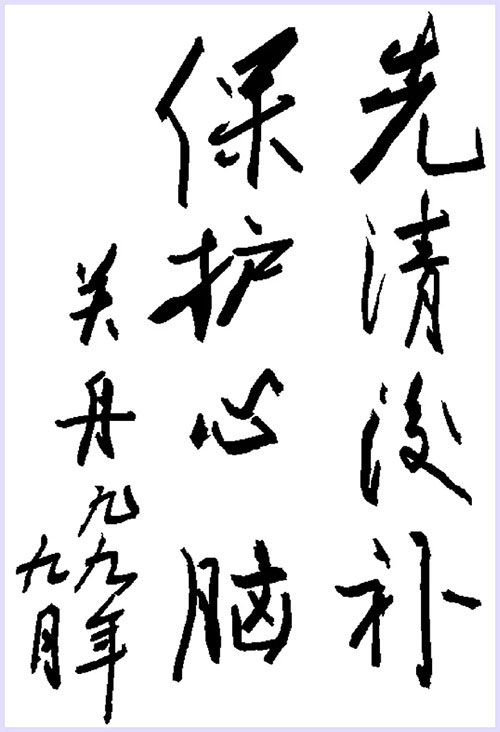 先清後补
保护心脑
关丹九九年
九月